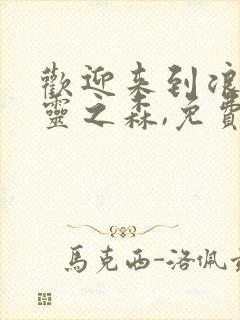 歡迎来到浪
靈之森,免費
馬克西-洛佩